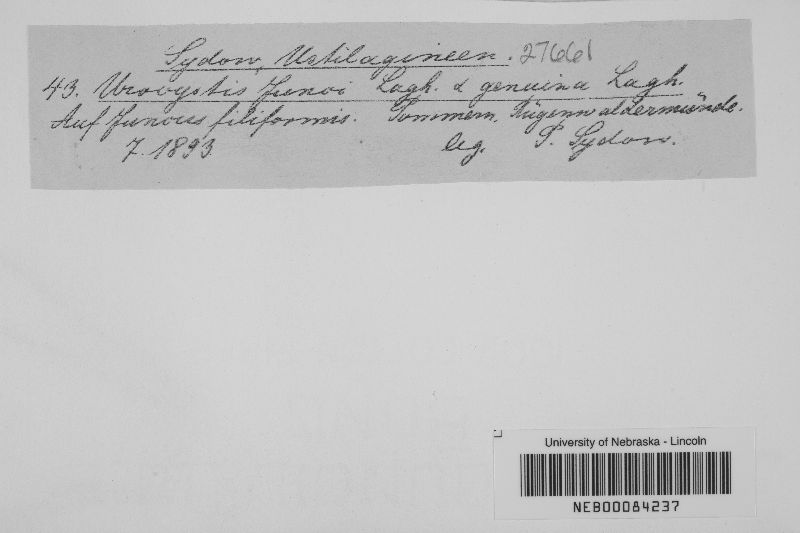 Sydow, Ustilagineen. 27661
43. Urocystis Junci Lagh. α genuina Lagh.
Auf Juncus filiformis. Pommern, Rügenwaldermünde.
7. 1893. leg. P. Sydow.
University of Nebraska - Lincoln
NEB00084237